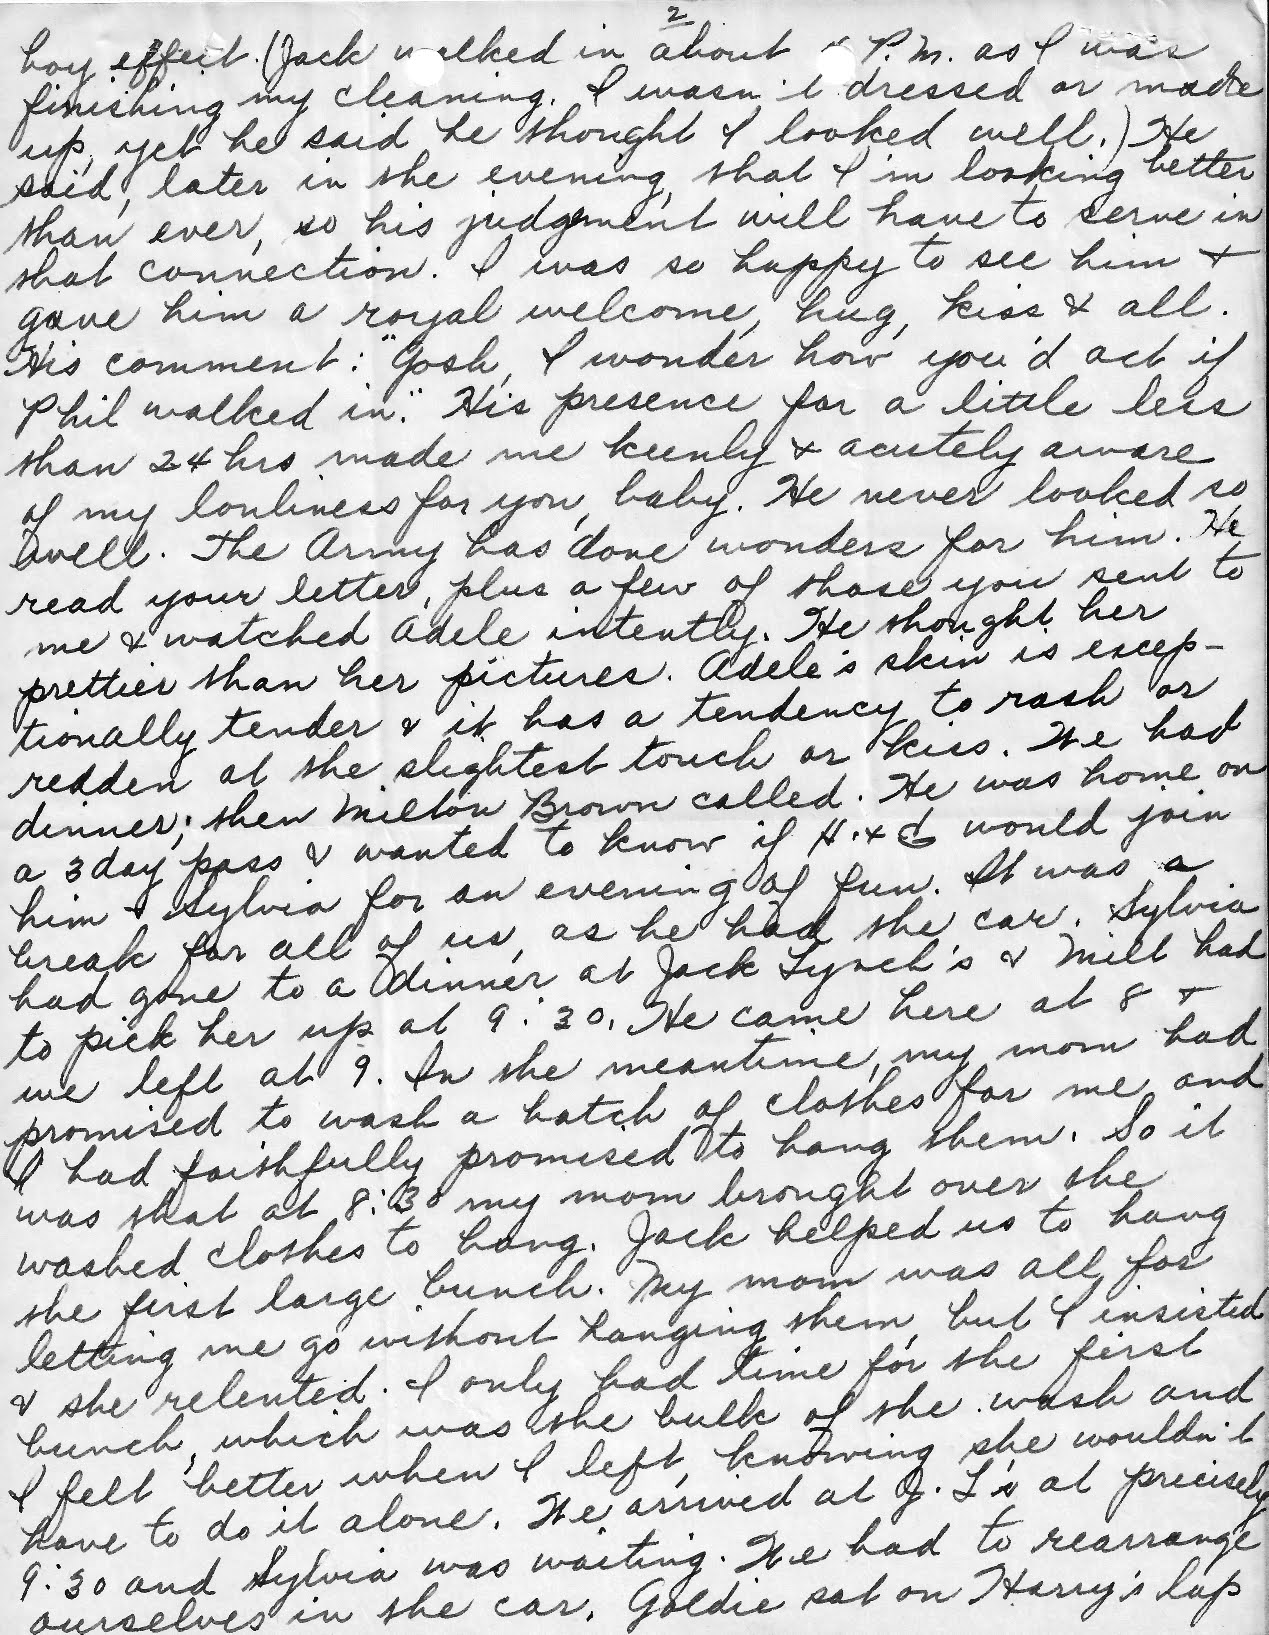 2
boy effect. (Jack walked in about P.M. as I was
finishing my cleaning. I wasn't dressed or made
up, yet he said he thought I looked well.) He
said, later in the evening, that I'm looking better
than ever, so his judgment will have to serve in
that connection. I was so happy to see him &
gave him a royal welcome, hug, kiss & all.
His comment: "Gosh, I wonder how you'd act if
Phil walked in." His presence for a little less
than 24 hrs made me keenly & acutely aware
of my lonliness for you, baby. He never looked so
well. The Army has done wonders for him. He
read your letter, plus a few of those you sent to
me & watched Adele intently. He thought her
prettier than her pictures. Adele's skin is excep-
tionally tender & it has a tendency to rash or
redden at the slightest touch or kiss. We had
dinner; then Milton Brown called. He was home on
a 3 day pass & wanted to know if H. & G would join
him & Sylvia for an evening of fun. It was a
break for all of us, as he had the car. Sylvia
had gone to a dinner at Jack Lynch's & Milt had
to pick her up at 9:30. He came here at 8 &
we left at 9. In the meantime, my mom had
promised to wash a batch of clothes for me and
I had faithfully promised to hang them. So it
was that at 8:30 my mom brought over the
washed clothes to hang. Jack helped us to hang
the first large bunch. My mom was all for
letting me go without hanging them, but I insisted
& she relented. I only had time for the first
bunch, which was the bulk of the wash and
I felt better when I left, knowing she wouldn't
have to do it alone. We arrived at J. L's at precisely
9:30 and Sylvia was waiting. We had to rearrange
ourselves in the car. Goldie sat on Harry's lap